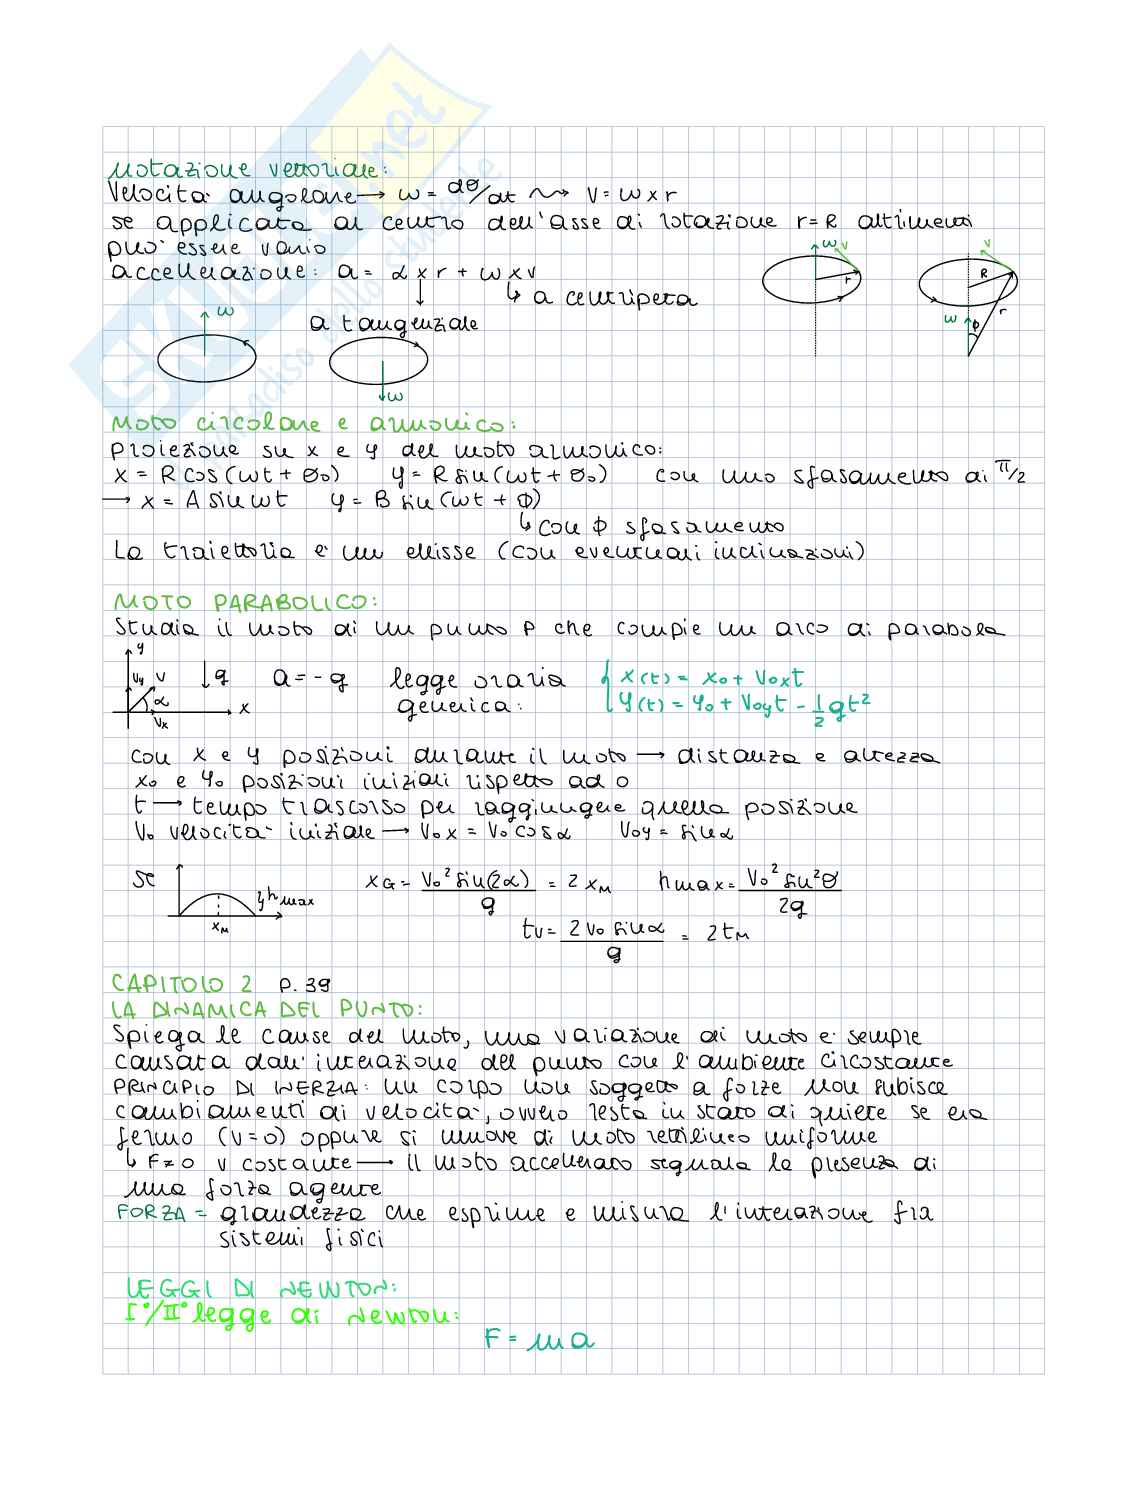 Notazione vettoriale:
Velocità angolare → ω = dθ/dt ⇝ V = ω x r
se applicata al centro dell'asse di rotazione r = R altrimenti
può essere vario
accellerazione: a = α x r + ω x v
↳ a centripeta
a tangenziale
ω
ω
ω v
r
v
R
r
ω
ϕ
Moto circolare e armonico:
proiezione su x e y del moto armonico:
x = R cos(ωt + θ₀) y = R sin(ωt + θ₀) con uno sfasamento di π/2
→ x = A sin ωt y = B sin(ωt + ϕ)
↳ con ϕ sfasamento
La traiettoria è un ellisse (con eventuali inclinazioni)
MOTO PARABOLICO:
Studia il moto di un punto P che compie un arco di parabola
y
Vy V α Vx x
↓g a = -g legge oraria generica:
x(t) = x₀ + V₀xt
y(t) = y₀ + V₀yt - 1/2 gt²
con x e y posizioni durante il moto → distanza e altezza
x₀ e y₀ posizioni iniziali rispetto ad 0
t → tempo trascorso per raggiungere quella posizione
V₀ velocità iniziale → V₀x = V₀ cosα V₀y = sinα
se
hmax
xM
xG = V₀² sin(2α)/g = 2xM hmax = V₀² sin²θ/2g
tv = 2V₀ sinα/g = 2tM
CAPITOLO 2 P. 39
LA DINAMICA DEL PUNTO:
Spiega le cause del moto, una variazione di moto è sempre
causata dall'interazione del punto con l'ambiente circostante
PRINCIPIO DI INERZIA: un corpo non soggetto a forze non subisce
cambiamenti di velocità, ovvero resta in stato di quiete se era
fermo (v=0) oppure si muove di moto rettilineo uniforme
↳ F=0 v costante → il moto accellerato segnala la presenza di
una forza agente
FORZA = grandezza che esprime e misura l'interazione fra
sistemi fisici
LEGGI DI NEWTON:
I°/II° legge di Newton:
F = ma
SKUOLA.net
paradiso dello studente